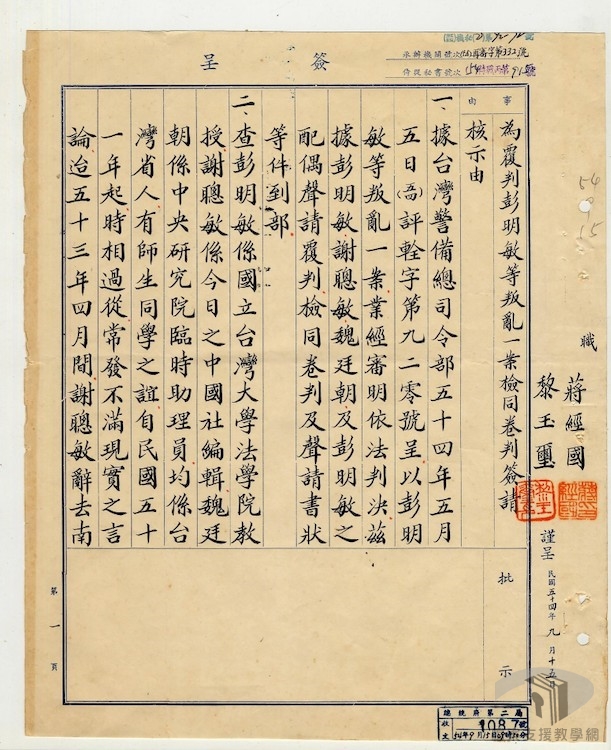 簽呈
承辦機關號次(54)典審字第332號
事由
為覆判彭明敏等叛亂一案檢同卷判簽請
核示由
一、據台灣警備總司令部五十四年五月
五日(五四)評輇字第九二零號呈以彭明
敏等叛亂一案業經審明依法判決茲
據彭明敏謝聰敏魏廷朝及彭明敏之
配偶聲請覆判檢同卷判及聲請書狀
等件到部
二、查彭明敏係國立台灣大學法學院教
授謝聰敏係今日之中國社編輯魏廷
朝係中央研究院臨時助理員均係台
灣省人有師生同學之誼自民國五十
一年起時相過從常發不滿現實之言
論迨五十三年四月間謝聰敏辭去南
職
蔣經國
黎玉璽
謹呈
民國五十四年九月十五日
批示
第一頁
總統府第二局
收文
1087號
54年9月15日
支援教學網